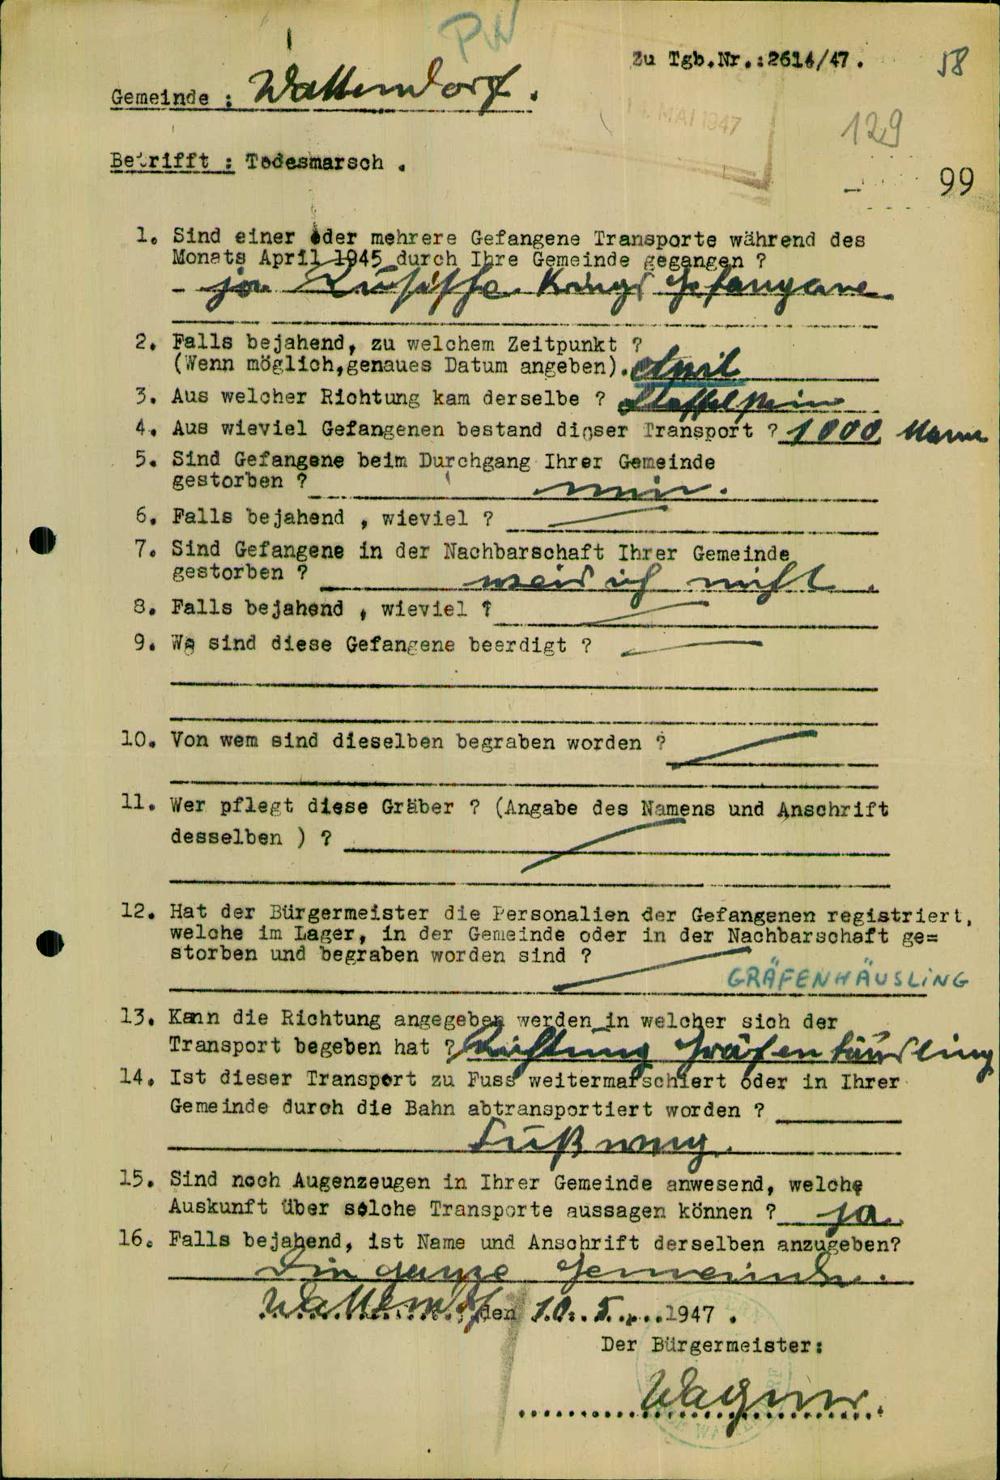 PW
Zu Tgb.Nr.:2614/47.
58
Gemeinde : Wattendorf.
MAI 1947
129
Betrifft : Todesmarsch .
99
1. Sind einer oder mehrere Gefangene Transporte während des
Monats April 1945 durch Ihre Gemeinde gegangen ?
- ja Russische Kriegs Gefangene
2. Falls bejahend, zu welchem Zeitpunkt ?
(Wenn möglich,genaues Datum angeben). April
3. Aus welcher Richtung kam derselbe ? Staffelstein
4. Aus wieviel Gefangenen bestand dieser Transport ? 1000 Mann
5. Sind Gefangene beim Durchgang Ihrer Gemeinde
gestorben ? nein.
6. Falls bejahend , wieviel ?
7. Sind Gefangene in der Nachbarschaft Ihrer Gemeinde
gestorben ? weis ich nicht.
8. Falls bejahend , wieviel ?
9. Wo sind diese Gefangene beerdigt ?
10. Von wem sind dieselben begraben worden ?
11. Wer pflegt diese Gräber ? (Angabe des Namens und Anschrift
desselben ) ?
12. Hat der Bürgermeister die Personalien der Gefangenen registriert,
welche im Lager, in der Gemeinde oder in der Nachbarschaft ge=
storben und begraben worden sind ?
GRÄFENHÄUSLING
13. Kann die Richtung angegeben werden in welcher sich der
Transport begeben hat ? Richtung Gräfenhäusling
14. Ist dieser Transport zu Fuss weitermarschiert oder in Ihrer
Gemeinde durch die Bahn abtransportiert worden ?
Fußweg.
15. Sind noch Augenzeugen in Ihrer Gemeinde anwesend, welche
Auskunft über solche Transporte aussagen können ? ja.
16. Falls bejahend, ist Name und Anschrift derselben anzugeben?
Die ganze Gemeinde.
Wattendorf, den 10. 5. 1947 .
Der Bürgermeister:
Wagner.